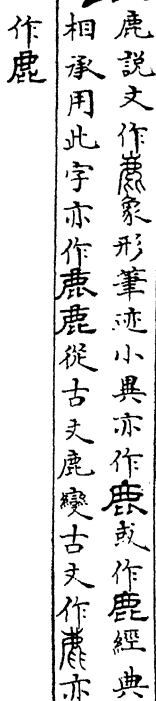 鹿說文作𢉖象形筆迹小異亦作鹿或作鹿經典
相承用此字亦作鹿鹿從古文鹿變古文作麃亦
作鹿